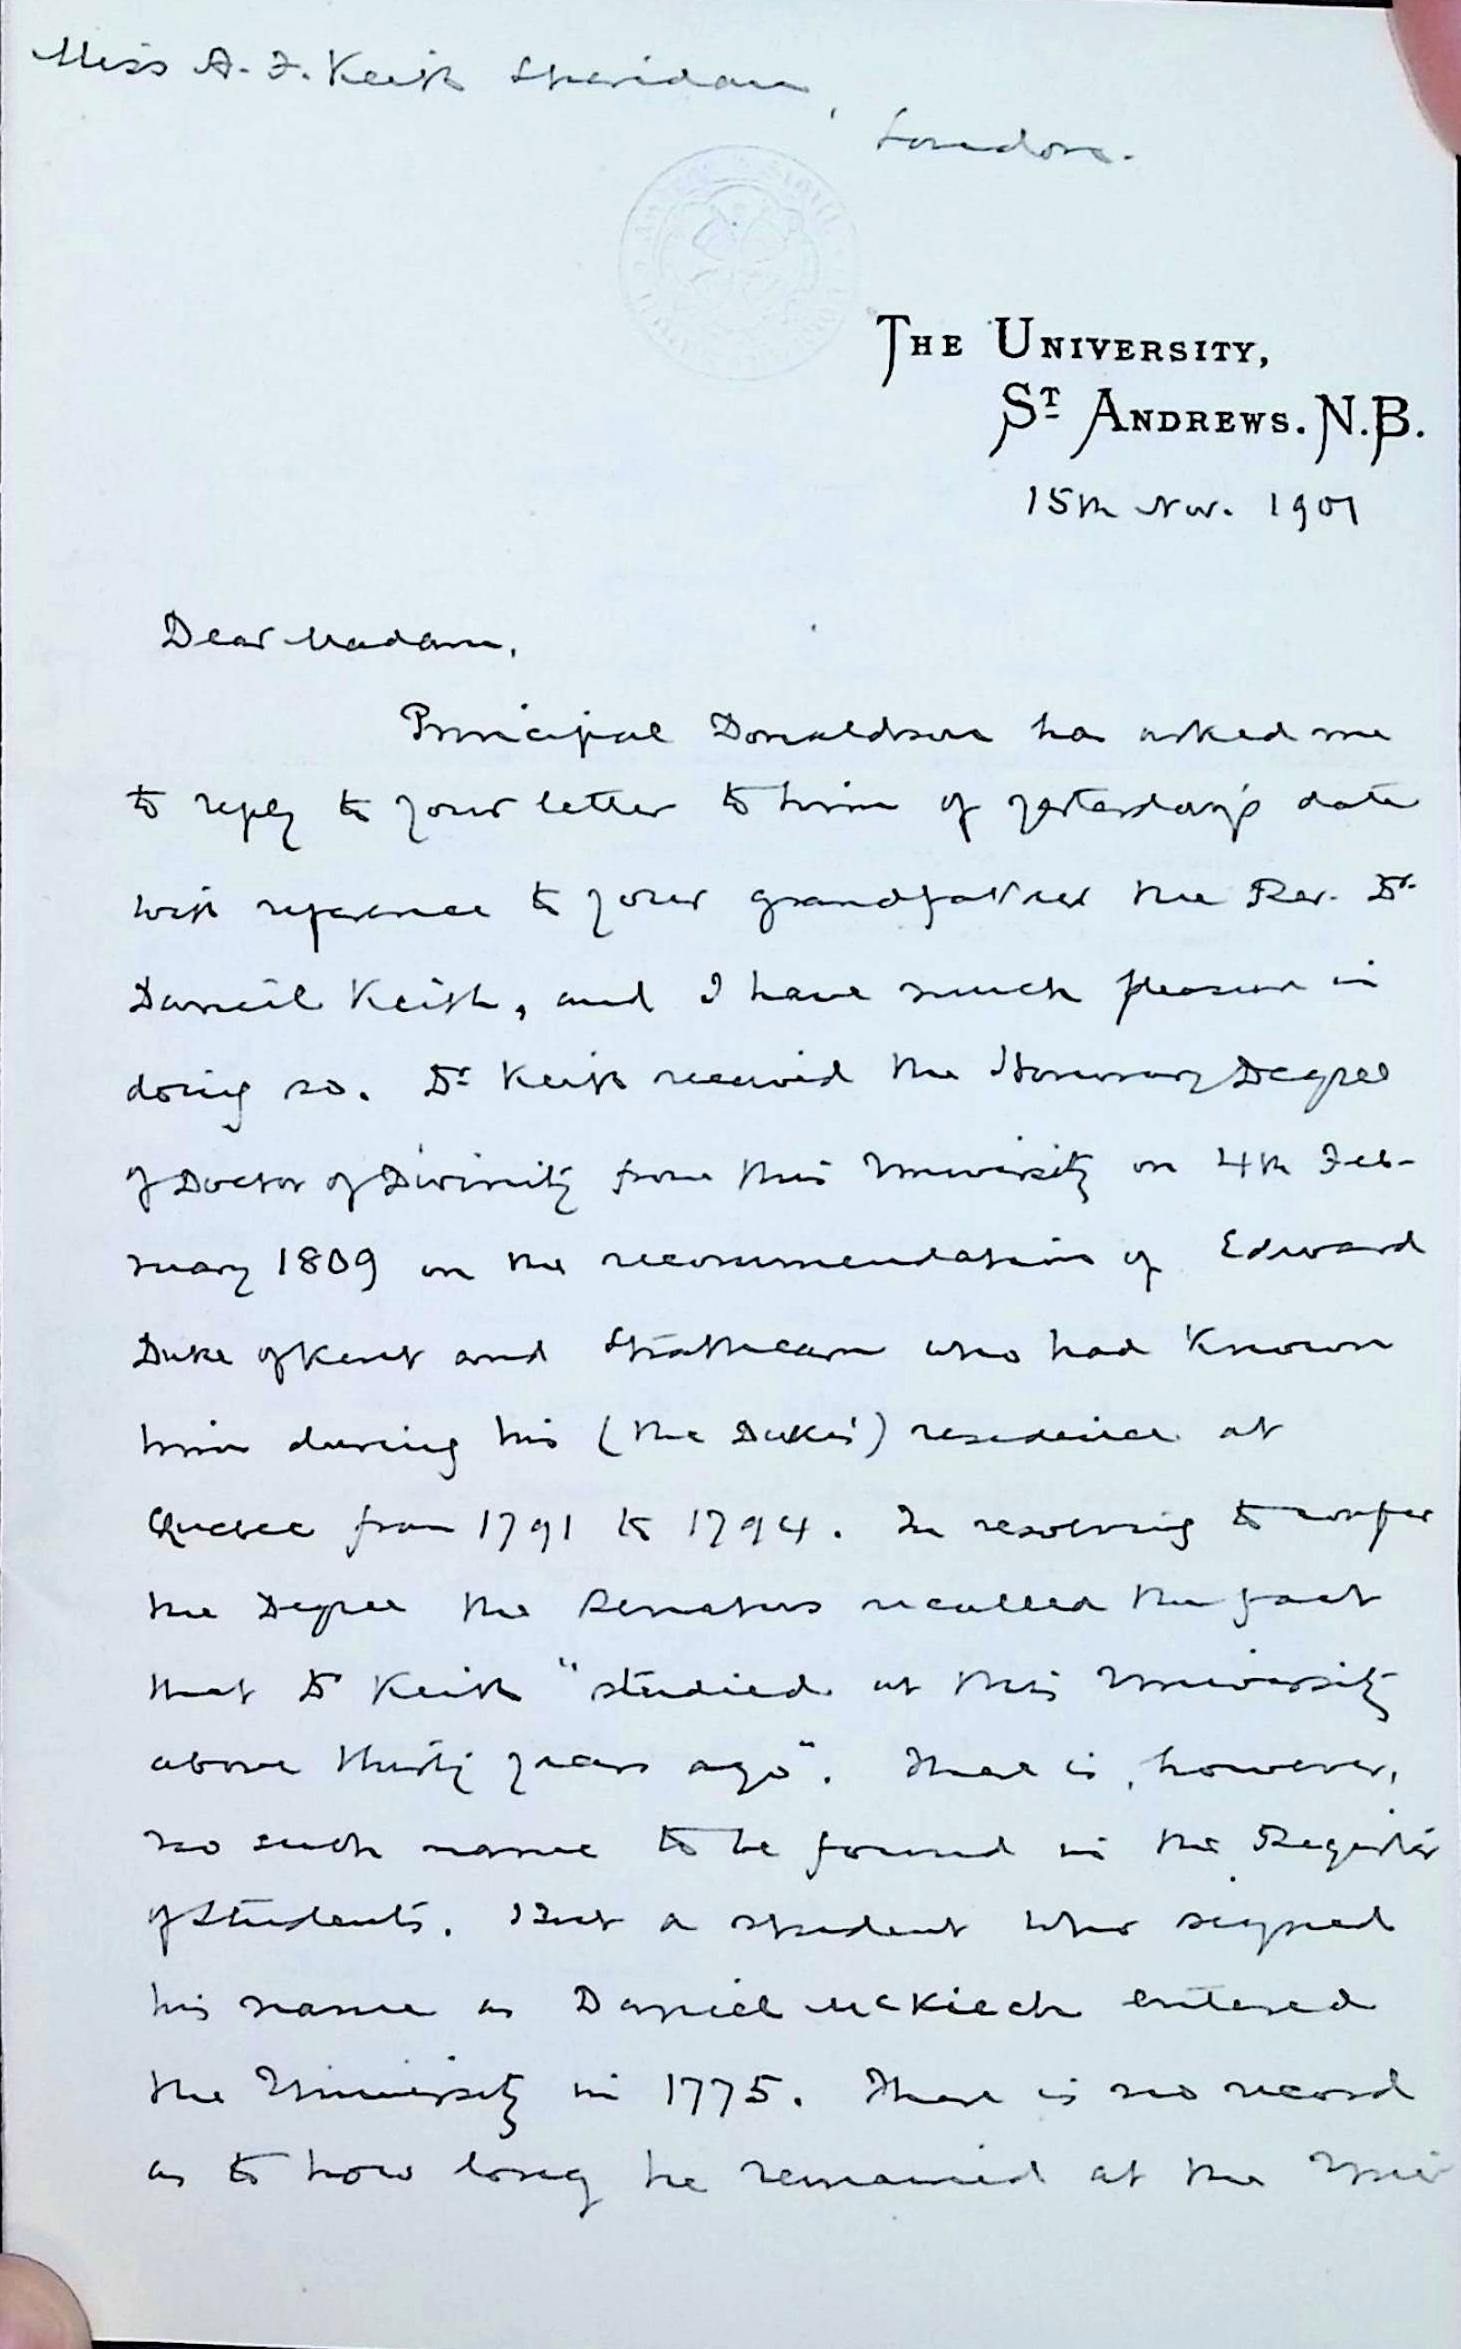 Miss A. F. Keith Sheridan,
London.
THE UNIVERSITY,
ST ANDREWS. N.B.
15th Nov. 1901
Dear Madam,
Principal Donaldson has asked me
to reply to your letter to him of yesterday's date
with reference to your grandfather the Rev. Dr
Daniel Keith, and I have much pleasure in
doing so. Dr Keith received the Honorary Degree
of Doctor of Divinity from this University on 4th Feb-
ruary 1809 on the recommendation of Edward
Duke of Kent and Strathearn who had known
him during his (the Duke's) residence at
Quebec from 1791 to 1794. In resolving to confer
the Degree the Senatus recalled the fact
that Dr Keith "studied at this University
above thirty years ago". There is, however,
no such name to be found in the Register
of Students. But a student who signed
his name as Daniel McKiech entered
the University in 1775. There is no record
as to how long he remained at the Uni